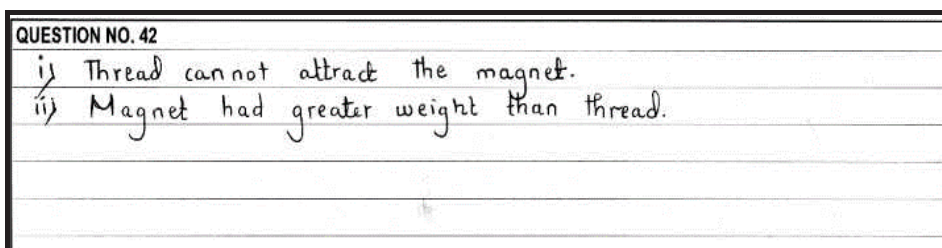 QUESTION NO. 42
i) Thread can not attract the magnet.
ii) Magnet had greater weight than thread.